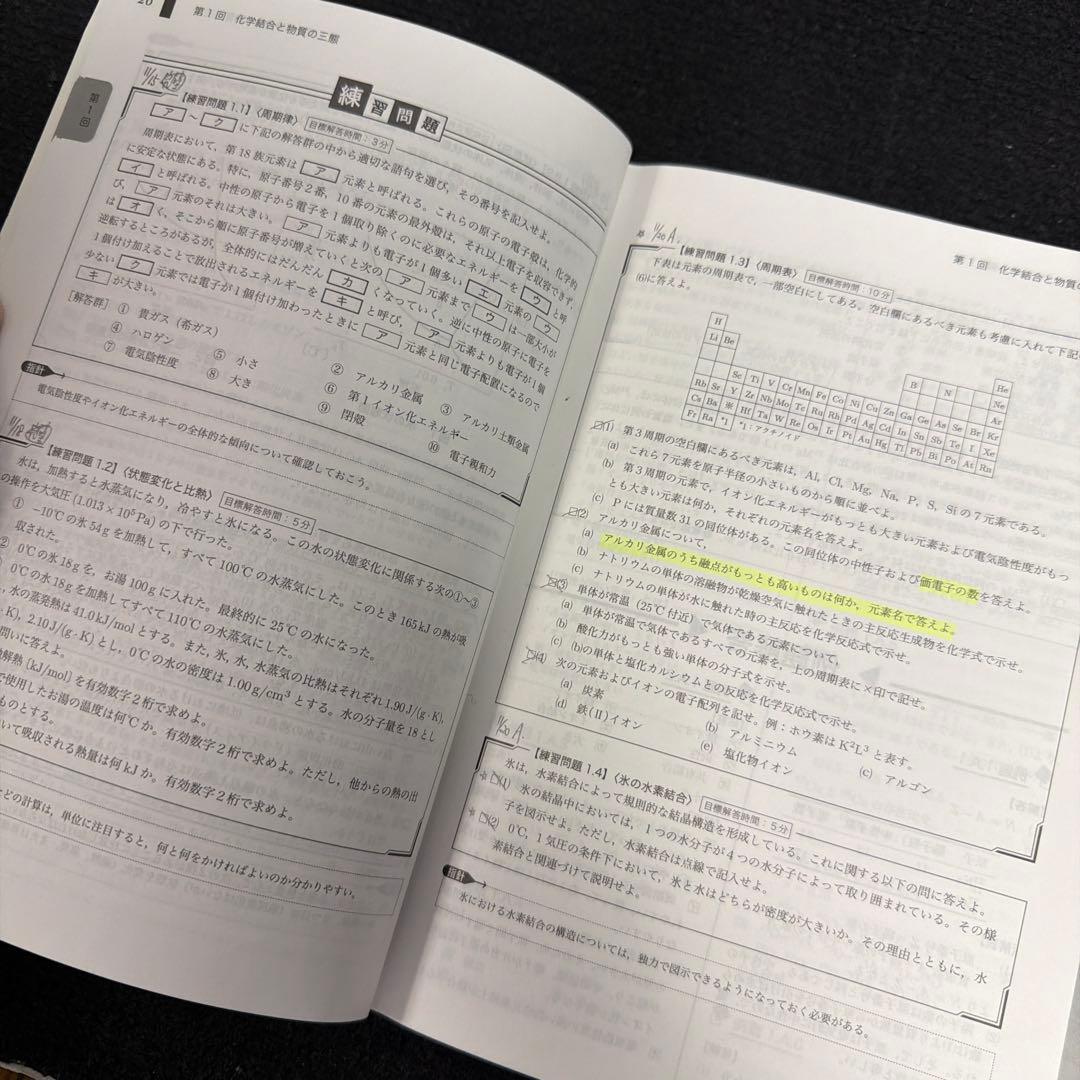 20
第1回 化学結合と物質の三態
第1回
11/15
練習問題
【練習問題 1.1】〈周期律〉 目標解答時間:3分
ア ~ ク に下記の解答群の中から適切な語句を選び,その番号を記入せよ。
周期表において,第18族元素は ア 元素と呼ばれる。これらの原子の電子殻は,化学的
に安定な状態にある。特に,原子番号2番,10番の元素の最外殻は,それ以上電子を収容できず,
イ と呼ばれる。中性の原子から電子を1個取り除くのに必要なエネルギーを ウ と呼
び, ア 元素のそれは大きい。 ア 元素よりも電子が1個多い エ 元素の ウ
は オ く,そこから順に原子番号が増えていくと次の ア 元素まで ウ は一部大小が
逆転するところがあるが,全体的にはだんだん カ くなっていく。逆に中性の原子に電子を
1個付け加えることで放出されるエネルギーを キ と呼び, ア 元素よりも電子が1個
少ない ク 元素では電子が1個付け加わったときに ア 元素と同じ電子配置になるので
キ が大きい。
[解答群] ① 貴ガス(希ガス) ② アルカリ金属 ③ アルカリ土類金属
④ ハロゲン ⑤ 小さ ⑥ 第1イオン化エネルギー
⑦ 電気陰性度 ⑧ 大き ⑨ 閉殻 ⑩ 電子親和力
指針
電気陰性度やイオン化エネルギーの全体的な傾向について確認しておこう。
11/18
【練習問題 1.2】〈状態変化と比熱〉 目標解答時間:5分
水は,加熱すると水蒸気になり,冷やすと氷になる。この水の状態変化に関係する次の①~③
の操作を大気圧(1.013×10⁵Pa)の下で行った。
① −10℃の氷54gを加熱して,すべて100℃の水蒸気にした。このとき165kJの熱が吸
収された。
② 0℃の氷18gを,お湯100gに入れた。最終的に25℃の水になった。
0℃の氷18gを加熱してすべて110℃の水蒸気にした。
,水の蒸発熱は41.0kJ/molとする。また,氷,水,水蒸気の比熱はそれぞれ1.90J/(g・K),
・K),2.10J/(g・K)とし,0℃の水の密度は1.00g/cm³とする。水の分子量を18とし
問いに答えよ。
解熱[kJ/mol]を有効数字2桁で求めよ。
で使用したお湯の温度は何℃か。有効数字2桁で求めよ。ただし,他からの熱の出
ものとする。
いて吸収される熱量は何kJか。有効数字2桁で求めよ。
などの計算は,単位に注目すると,何と何をかければよいのか分かりやすい。
第1回 化学結合と物質の
11/20 A.
【練習問題 1.3】〈周期表〉 目標解答時間:10分
下表は元素の周期表で,一部空白にしてある。空白欄にあるべき元素も考慮に入れて下記
(6)に答えよ。
H He
Li Be B N Ne
Ar
Sc Ti V Cr Mn Fe Co Ni Cu Zn Ga Ge As Se Br Kr
Rb Sr Y Zr Nb Mo Tc Ru Rh Pd Ag Cd In Sn Sb Te I Xe
Cs Ba ※ Hf Ta W Re Os Ir Pt Au Hg Tl Pb Bi Po At Rn
Fr Ra *1 *1:アクチノイド
(1) 第3周期の空白欄にあるべき元素は,Al,Cl,Mg,Na,P,S,Siの7元素である。
(a) これら7元素を原子半径の小さいものから順に並べよ。
(b) 第3周期の元素で,イオン化エネルギーがもっとも大きい元素および電気陰性度がもっ
とも大きい元素は何か,それぞれの元素名を答えよ。
(c) Pには質量数31の同位体がある。この同位体の中性子および価電子の数を答えよ。
(2) アルカリ金属について,
(a) アルカリ金属のうち融点がもっとも高いものは何か,元素名で答えよ。
(b) ナトリウムの単体の溶融物が乾燥空気に触れたときの主反応生成物を化学式で示せ。
(c) ナトリウムの単体が水に触れた時の主反応を化学反応式で示せ。
(3) 単体が常温(25℃付近)で気体である元素について,
(a) 単体が常温で気体であるすべての元素を,上の周期表に×印で記せ。
(b) 酸化力がもっとも強い単体の分子式を示せ。
(c) (b)の単体と塩化カルシウムとの反応を化学反応式で示せ。
(4) 次の元素およびイオンの電子配列を記せ。例:ホウ素はK²L³と表す。
(a) 炭素 (b) アルミニウム (c) アルゴン
(d) 鉄(II)イオン (e) 塩化物イオン
11/20 A.
【練習問題 1.4】〈氷の水素結合〉 目標解答時間:5分
氷は,水素結合によって規則的な結晶構造を形成している。これに関する以下の問に答えよ。
(1) 氷の結晶中においては,1つの水分子が4つの水分子によって取り囲まれている。その様
子を図示せよ。ただし,水素結合は点線で記入せよ。
(2) 0℃,1気圧の条件下において,氷と水はどちらが密度が大きいか。その理由とともに,水
素結合と関連づけて説明せよ。
指針
氷における水素結合の構造については,独力で図示できるようになっておく必要がある。